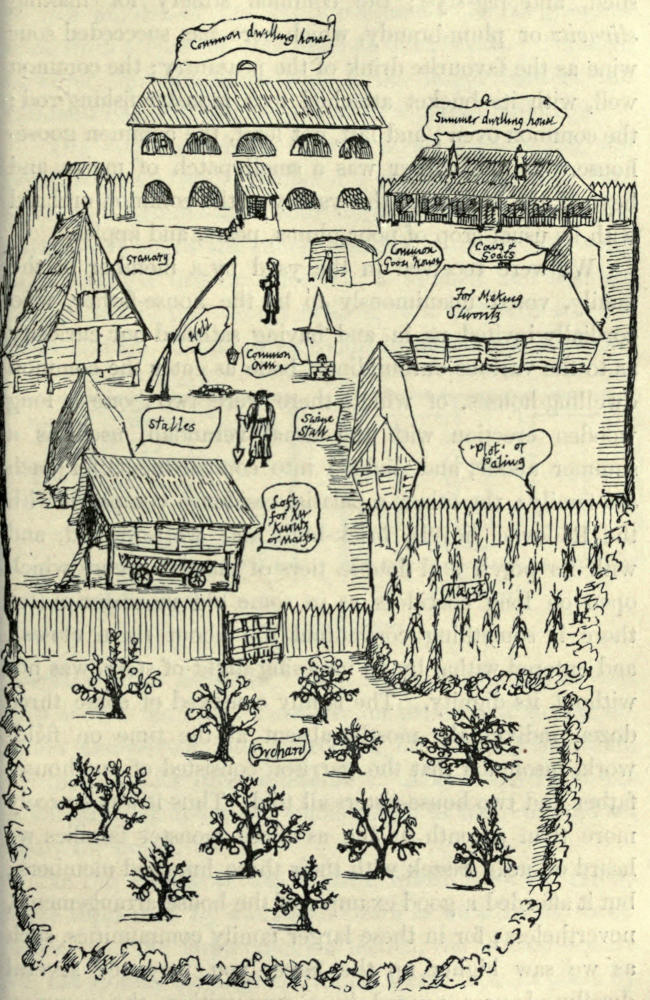 Common dwelling house
Summer dwelling house
Granary
Common
Goose house
Cows &
Goats
For Making
Slivovitz
Well
Common
Oven
Stalles
Swine
Stall
"Plot" or
Paling
Loft
For
Kuruts
or Maize
Maize
Orchard